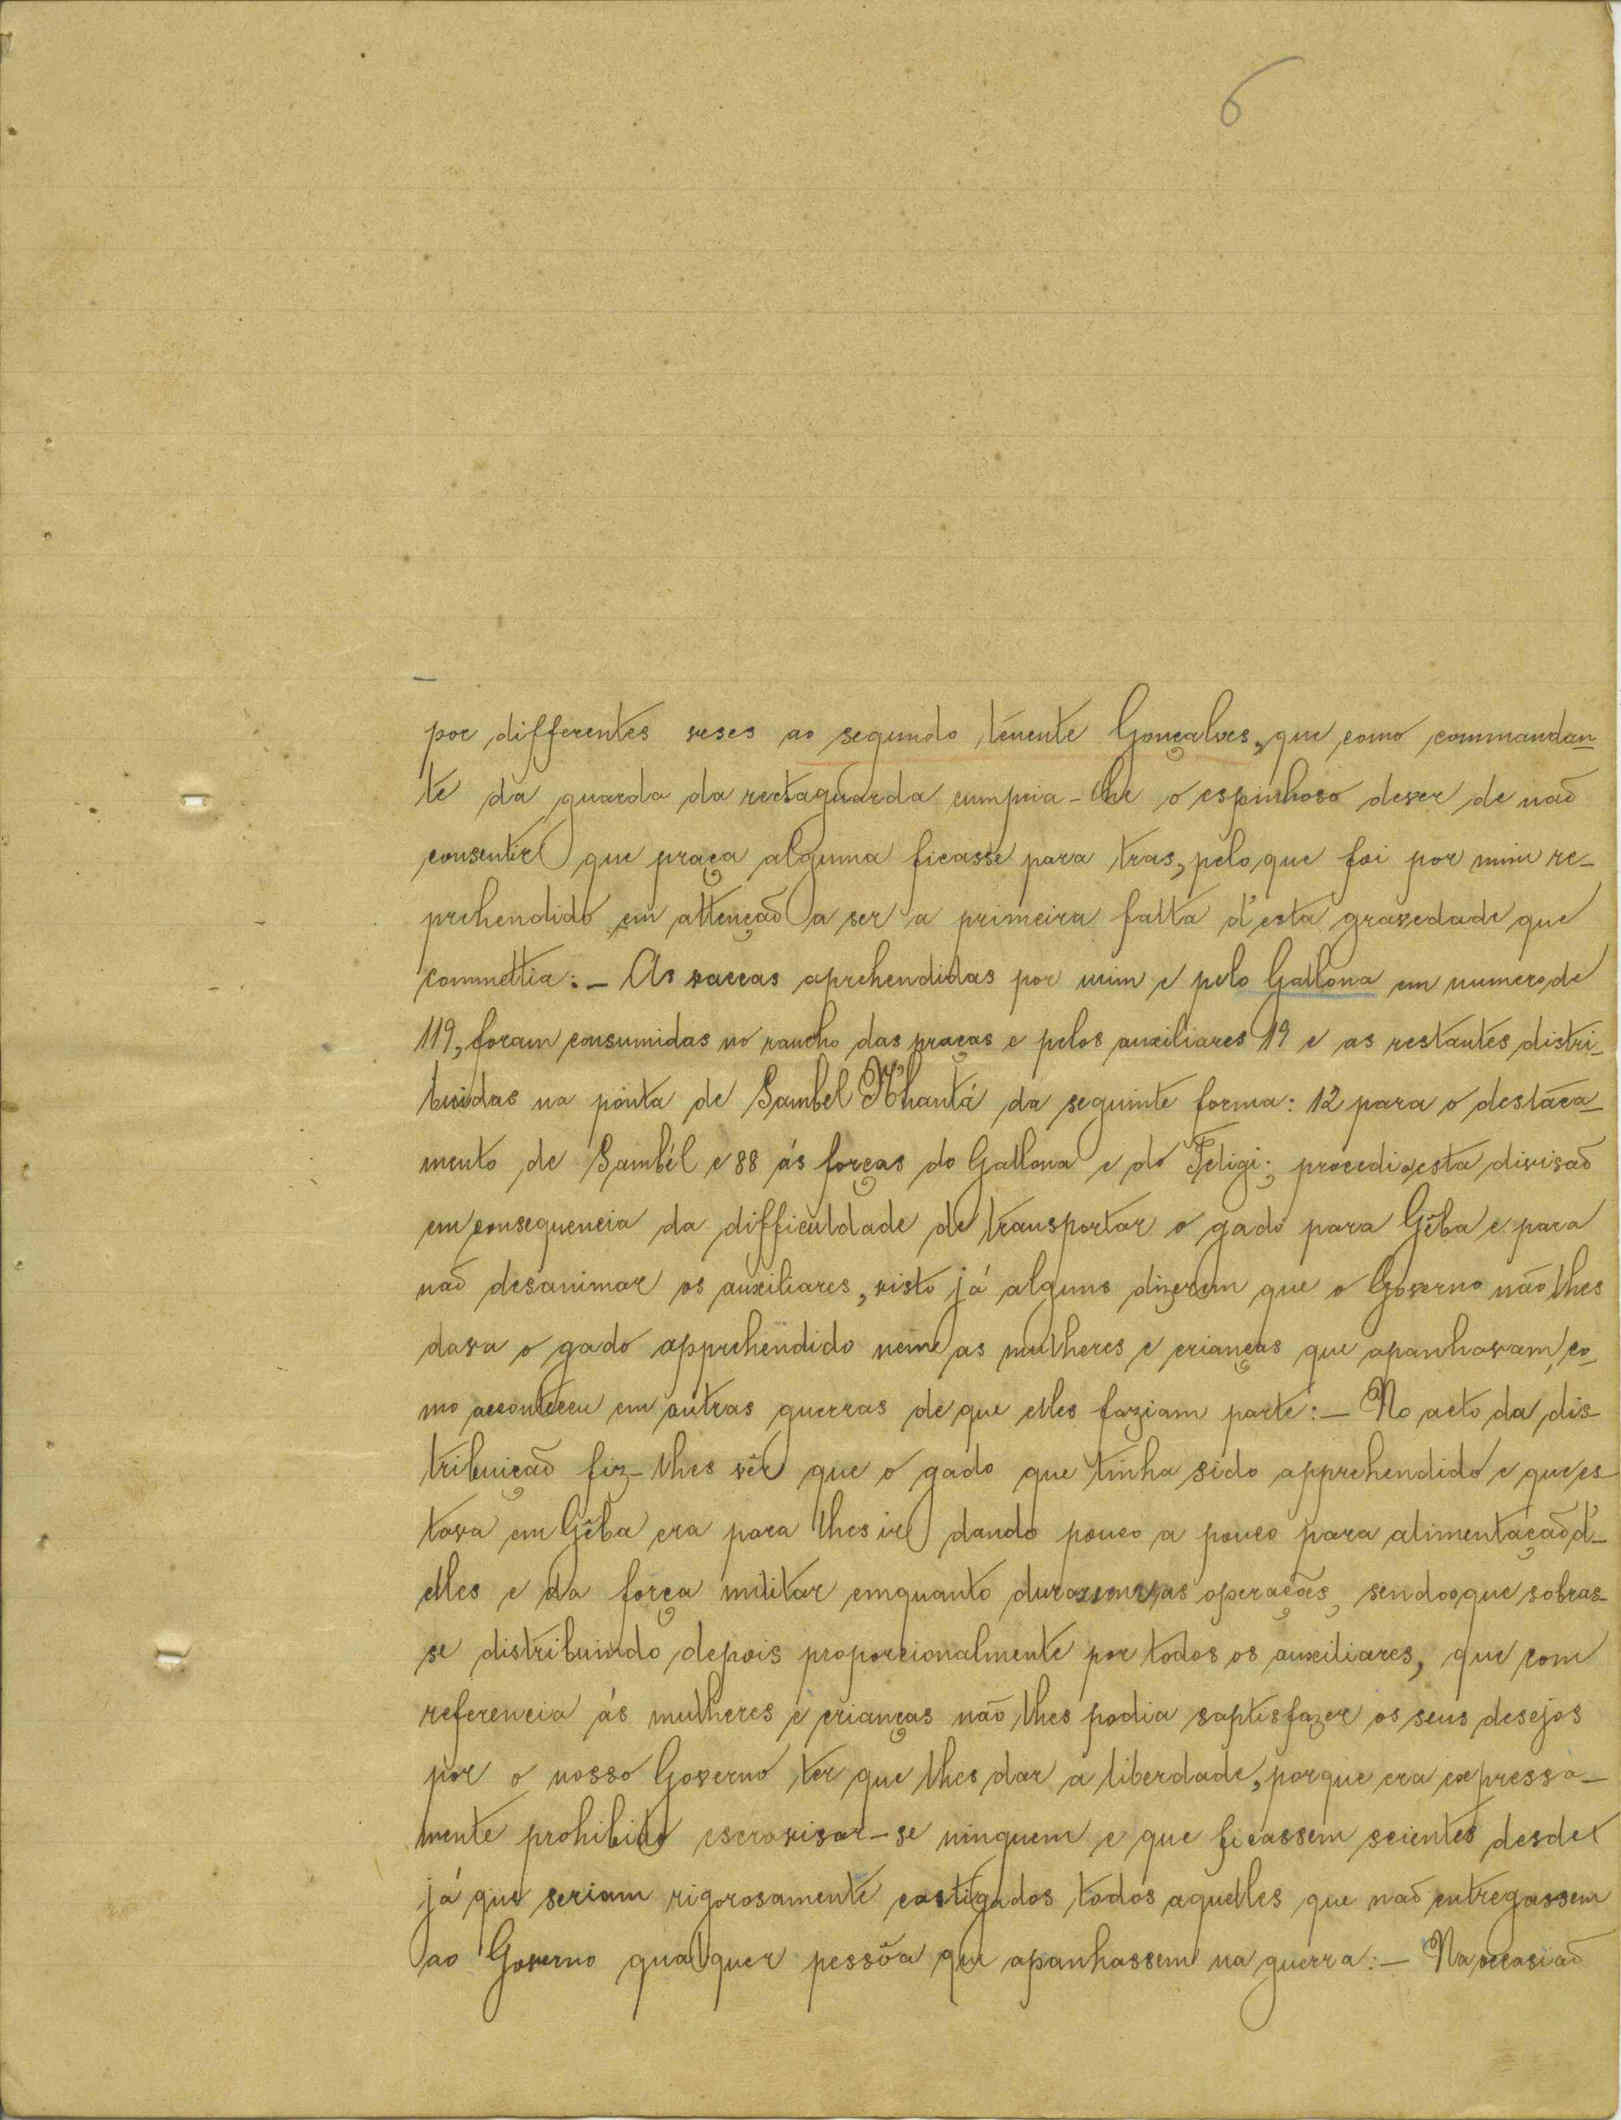 6
por differentes veses ao segundo tenente Gonçalves, que como commandan-
te da guarda da rectaguarda cumpria-lhe o espinhoso dever de não
consentir que praça alguma ficasse para tras, pelo que foi por mim re-
prehendido em attenção a ser a primeira falta d'esta gravedade que
commettia:- As vaccas aprehendidas por mim e pelo Gallona em numero de
119, foram consumidas no rancho das praças e pelos auxiliares 19 e as restantes distri-
buidas na pónta de Sambel Nhantá da seguinte forma: 12 para o destaca-
mento de Sambél e 88 ás forças do Gallona e do Feligi; procedi a esta divisão
em consequencia da difficuldade de transportar o gado para Gêba e para
não desanimar os auxiliares, visto já alguns dizerem que o Governo não lhes
dava o gado apprehendido nem as mulheres e crianças que apanhavam, co-
mo acconteceu em outras guerras de que elles faziam parte:- No acto da dis-
tribuição fiz-lhes vêr que o gado que tinha sido apprehendido e que es-
tava em Gêba era para lhes ir dando pouco a pouco para alimentação d'-
elles e da força militar emquanto durassem as operações, sendo o que sobras-
se distribuindo depois proporcionalmente por todos os auxiliares, que com
referencia ás mulheres e crianças não lhes podia saptisfazer os seus desejos
por o nosso Governo ter que lhes dar a liberdade, porque era expressa-
mente prohibido escravisar-se ninguem e que ficassem scientes desde
já que seriam rigorosamente castigados todos aquelles que não entregassem
ao Governo qualquer pessôa que apanhassem na guerra:- Na occasião